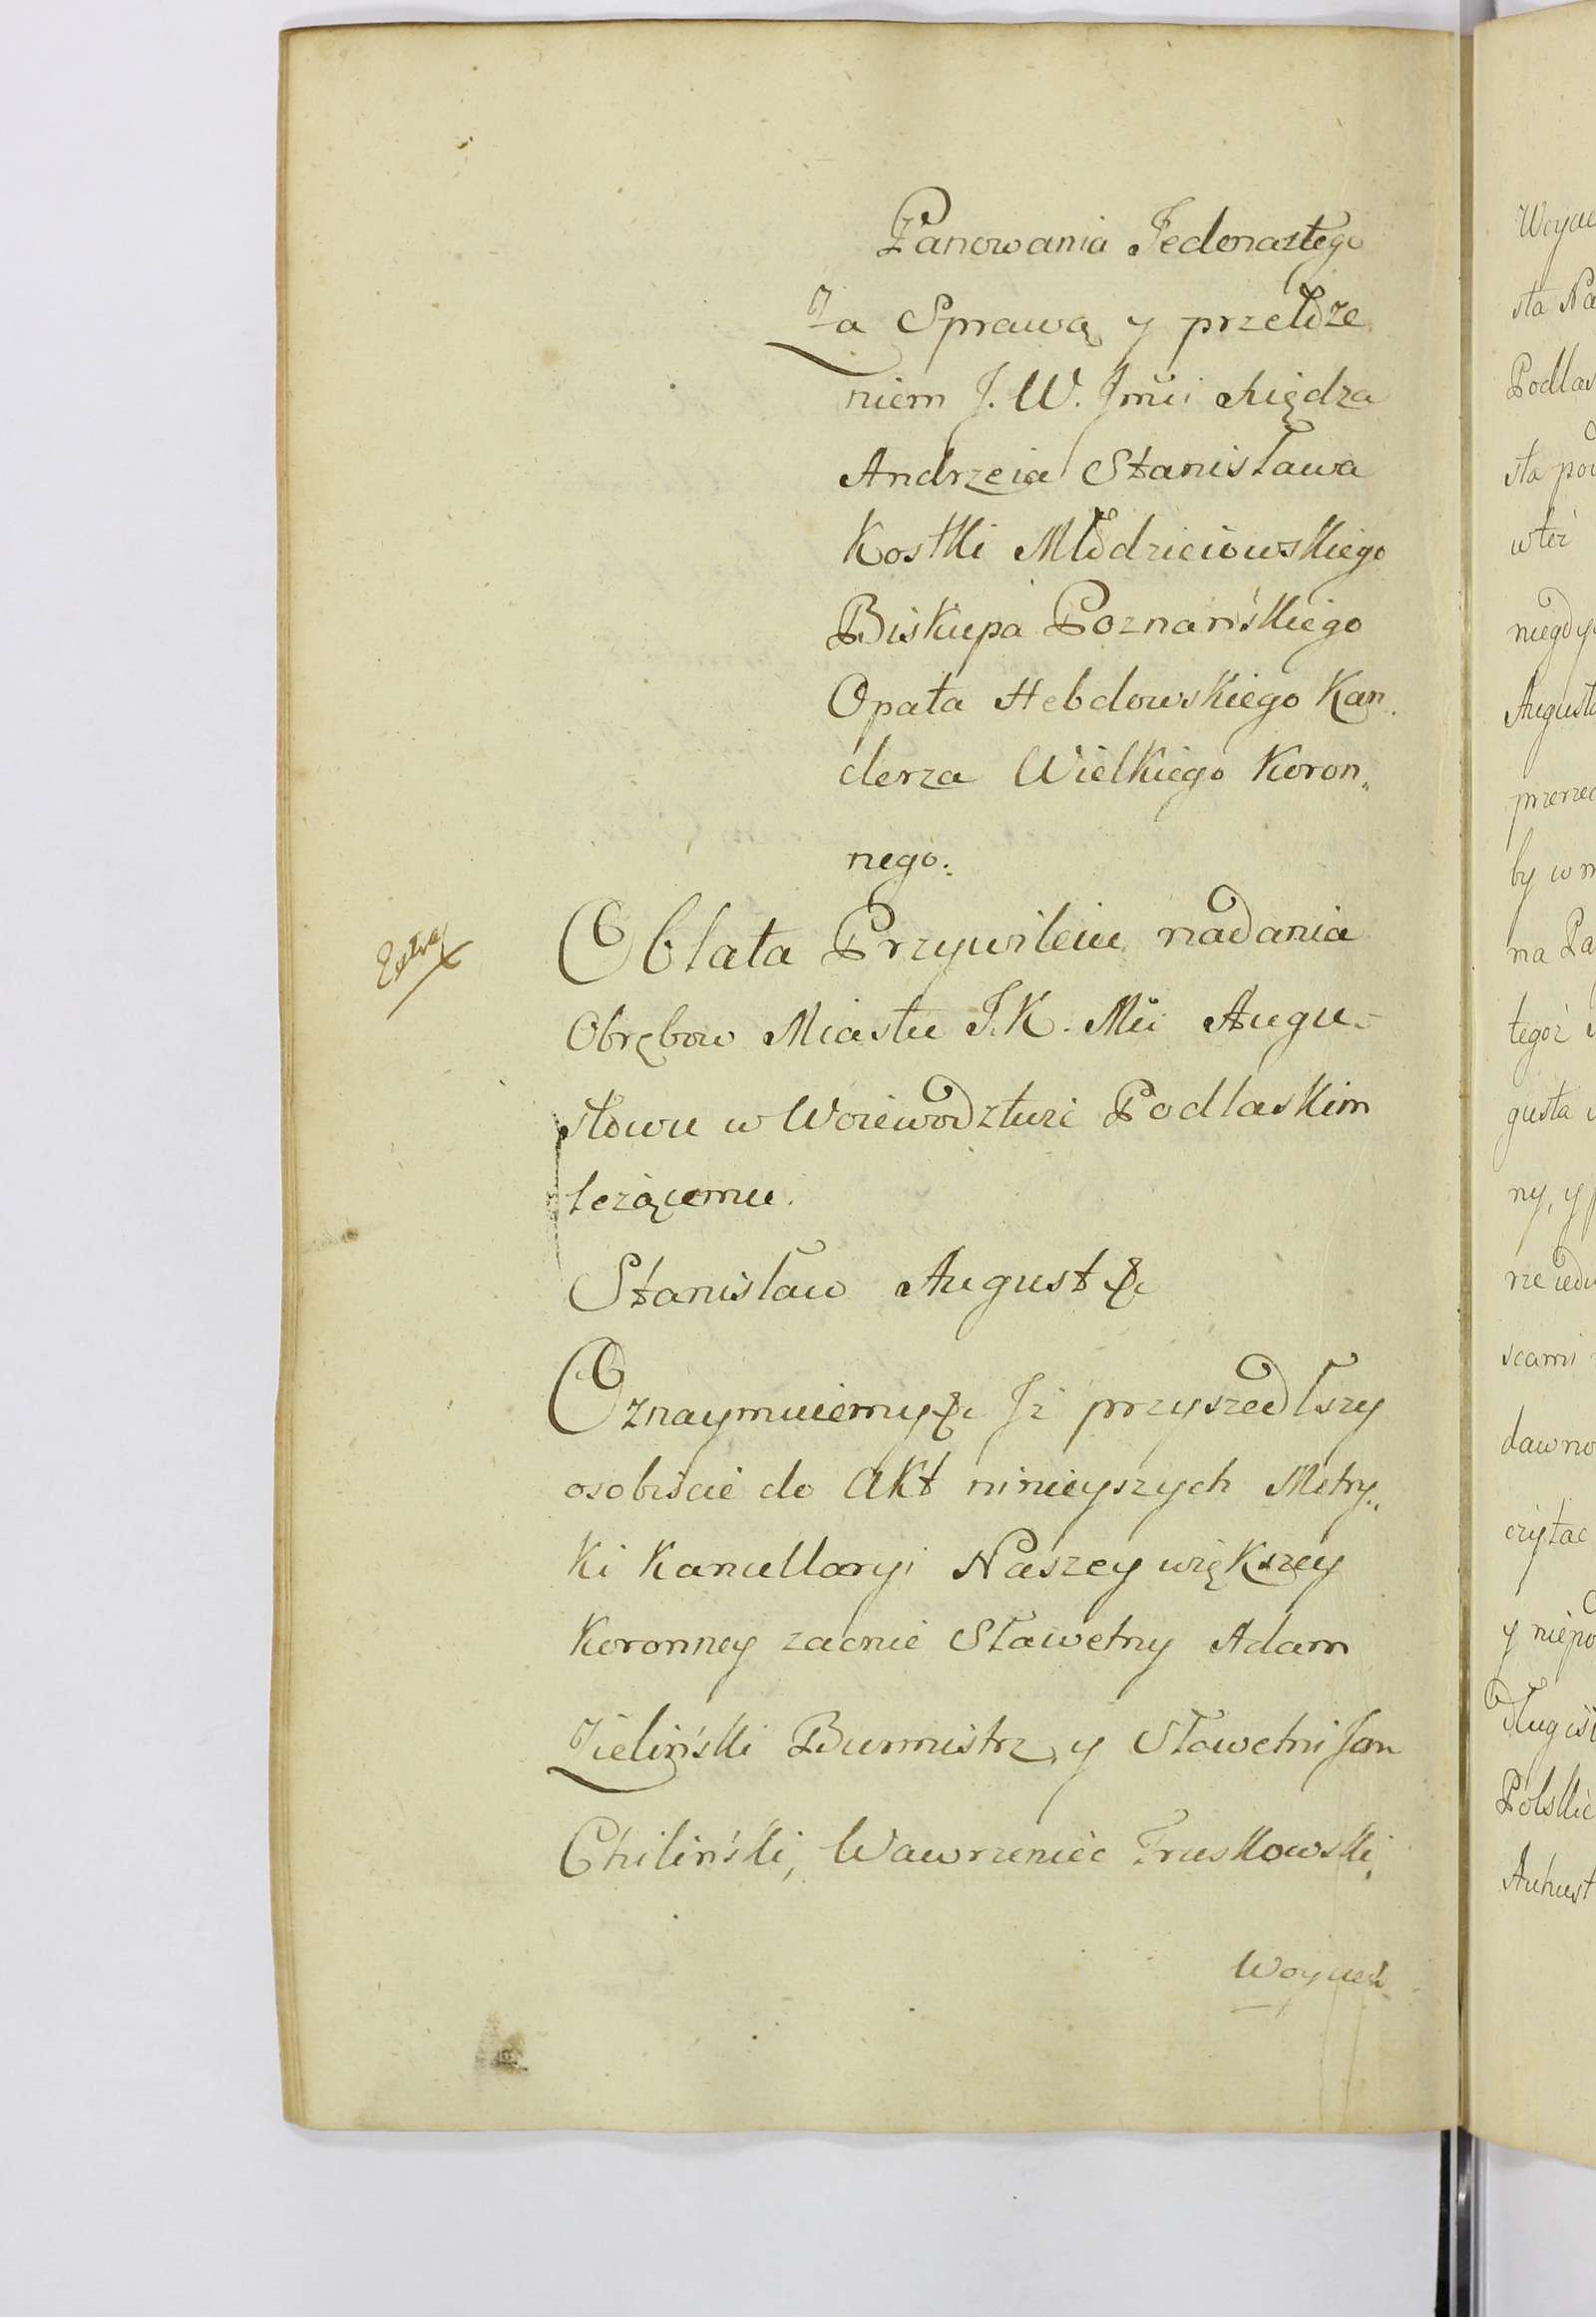 Panowania Jedenastego
Za Sprawą y przełoże
niem J. W. Jmci Xiędza
Andrzeia Stanisława
Kostki Młodzieiowskiego
Biskupa Poznańskiego
Opata Hebdowskiego Kan
clerza Wielkiego Koron„
nego.
Extra
Oblata Przywileiu nadania
Obrębow Miastu J.K. Mci Augu-
stowu w Woiewodztwie Podlaskim
leżącemu.
Stanisław August &c
Oznaymuiemy &c Iż przyszedłszy
osobiście do Akt ninieyszych Metry„
ki Kancellaryi Naszey większey
Koronney zacnie Sławetny Adam
Zieliński Burmistrz, y Sławetni Jan
Chiliński, Wawrzeniec Truskowski,
Woyciech
Woycie
sta Na
Podlas
sta pow
wteż
niegdy
Augusta
przerzec
by w m
na Pa
tegoż
gusta
ny, y p
rzeiedn
scami
dawno
czytac
y niepo
długośc
Polskie
Auhust